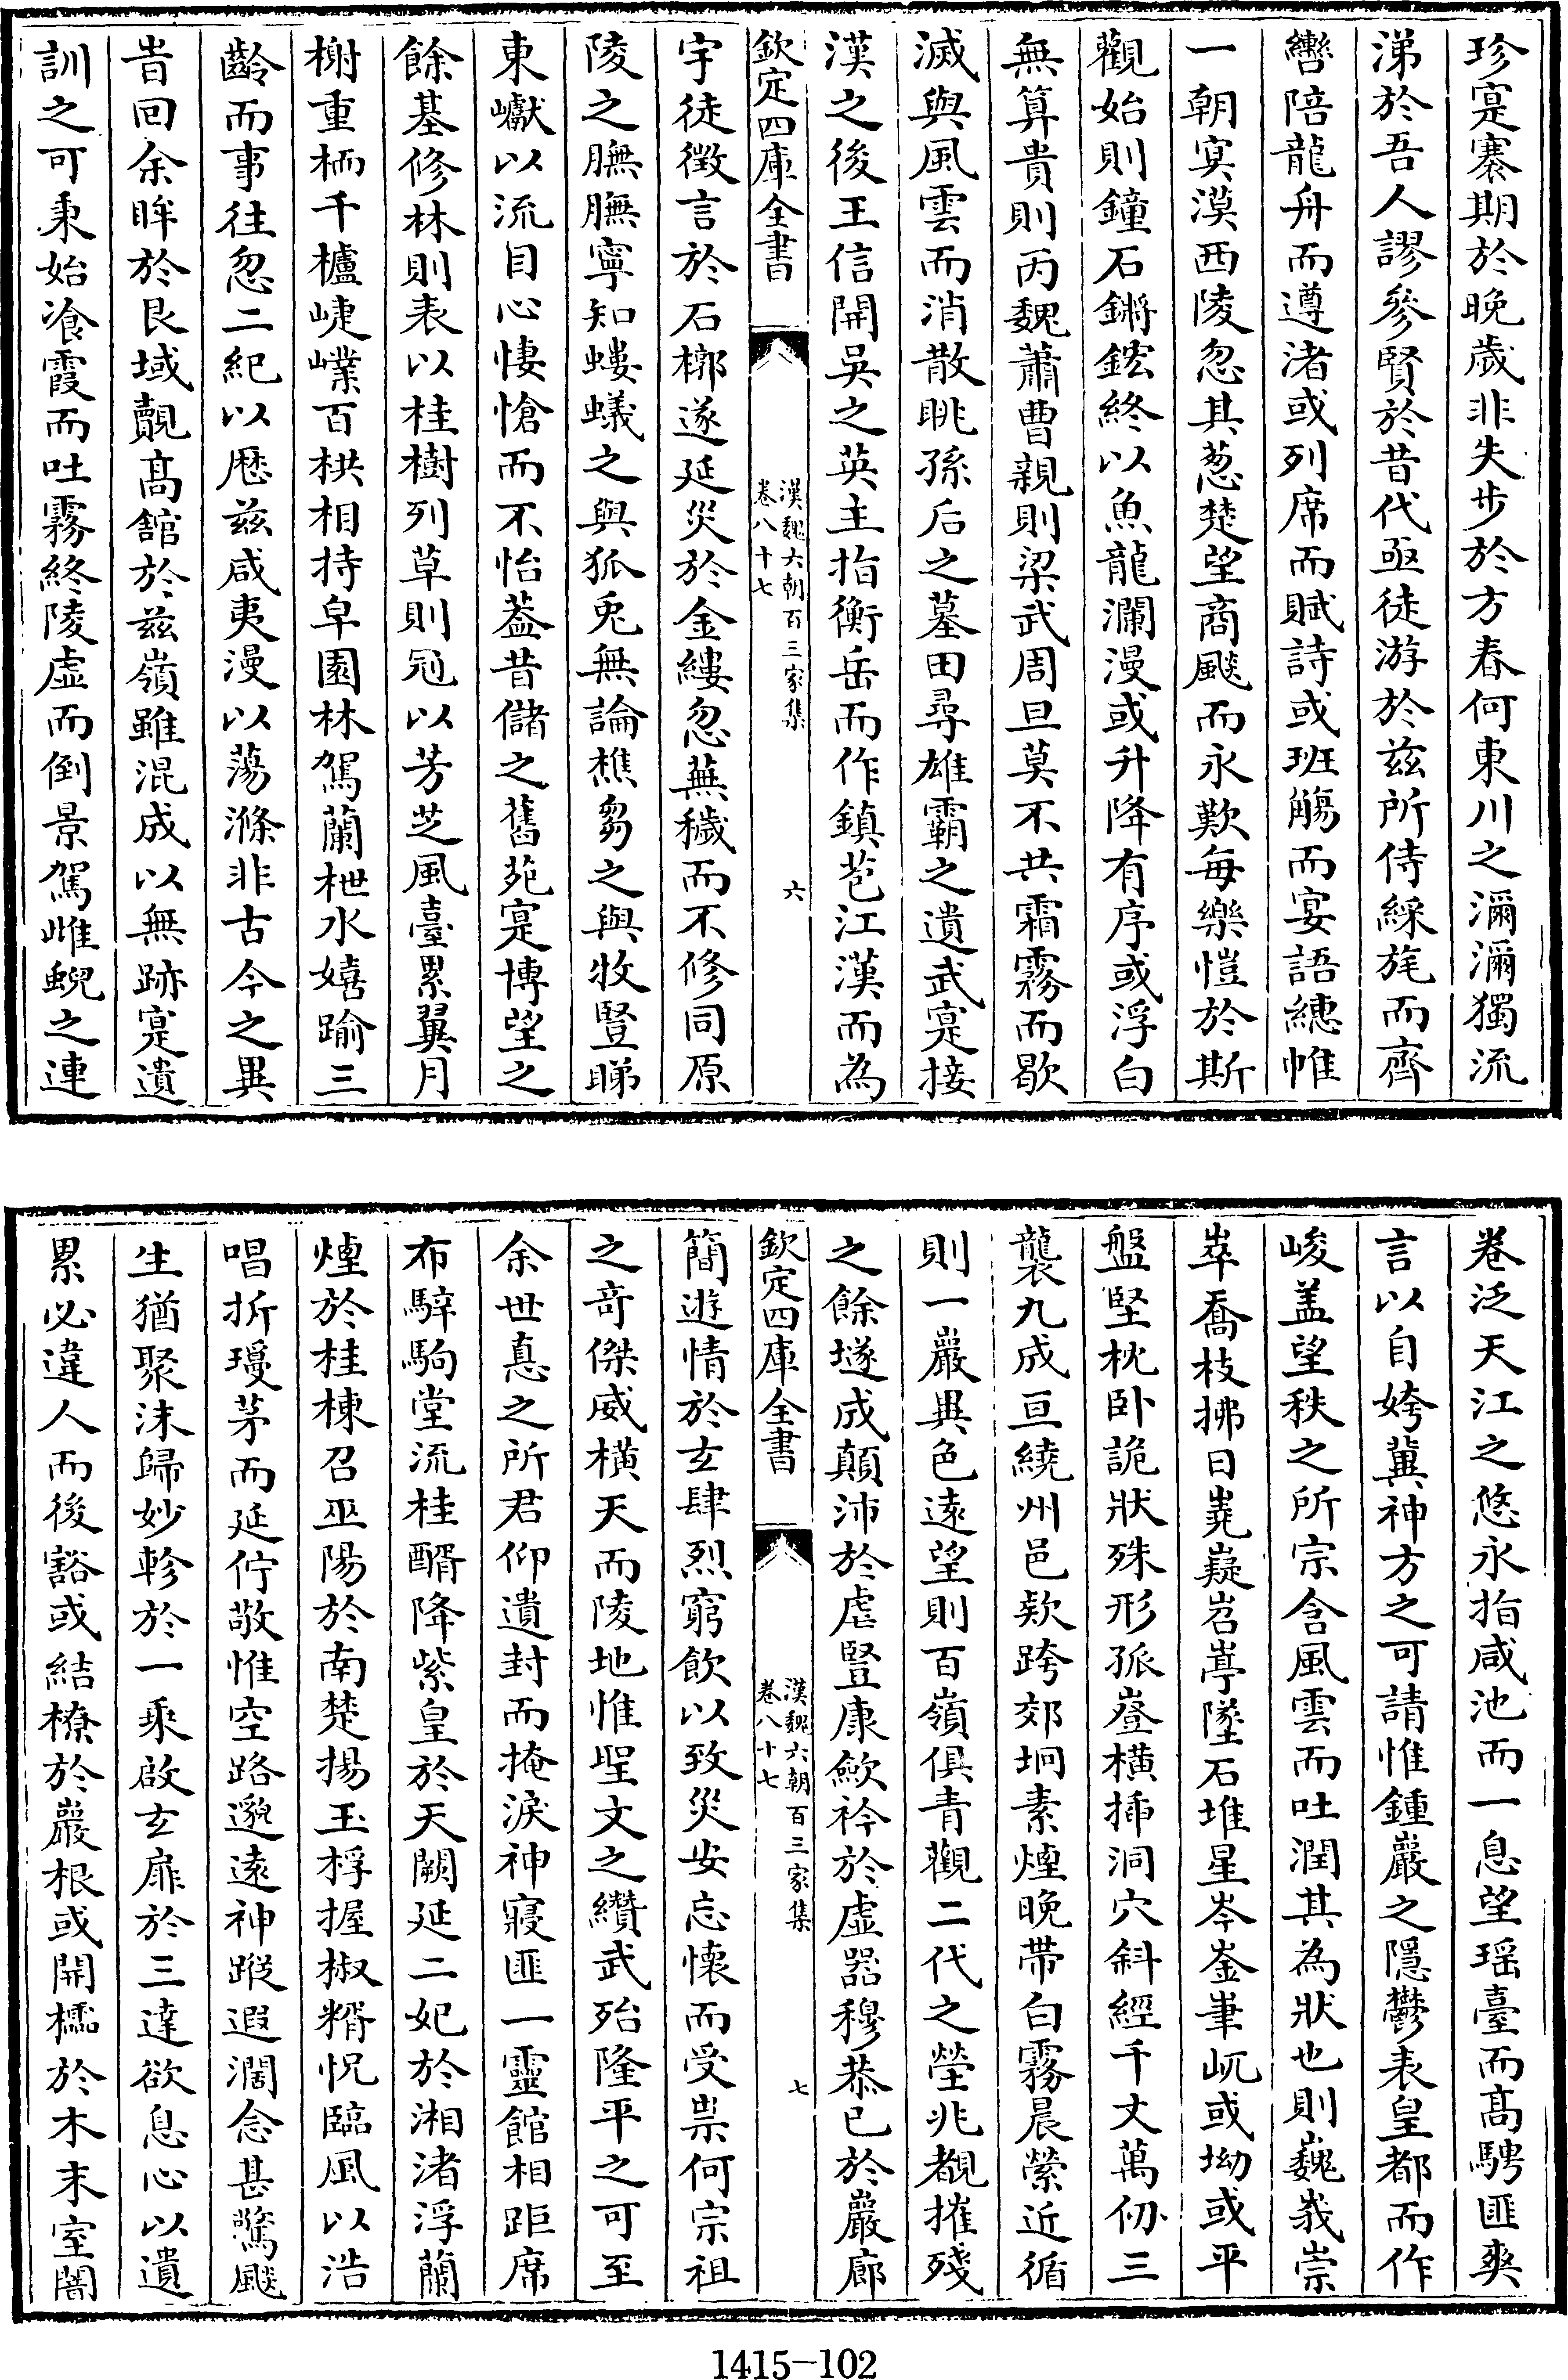 珍寔褰期於晚歲非失步於方春何東川之瀰瀰獨流
涕於吾人謬參賢於昔代亟徒游於兹所侍綵旄而齊
轡陪龍舟而遵渚或列席而賦詩或班觴而宴語繐帷
一朝冥漠西陵忽其葱楚望商飈而永歎每樂愷於斯
觀始則鐘石鏘鋐終以魚龍瀾漫或升降有序或浮白
無算貴則丙魏蕭曹親則梁武周旦莫不共霜霧而歇
滅與風雲而消散眺孫后之墓田尋雄霸之遺武寔接
漢之後王信開吳之英主指衡岳而作鎮苞江漢而為
欽定四庫全書
漢魏六朝百三家集
卷八十七
六
宇徒徵言於石槨遂延災於金縷忽蕪穢而不修同原
陵之膴膴寧知螻蟻之與狐兎無論樵芻之與牧豎睇
東巘以流目心悽愴而不怡葢昔儲之舊苑寔博望之
餘基修林則表以桂樹列草則冠以芳芝風臺累翼月
榭重栭千櫨崨嶫百栱相持皁園林駕蘭枻水嬉踰三
齡而事往忽二紀以厯兹咸夷漫以蕩滌非古今之異
旹回余眸於艮域覿髙舘於兹嶺雖混成以無跡寔遺
訓之可秉始飡霞而吐霧終陵虛而倒景駕雌蜺之連
卷泛天江之悠永指咸池而一息望瑶臺而髙騁匪爽
言以自姱冀神方之可請惟鍾巖之隱鬱表皇都而作
峻盖望秩之所宗含風雲而吐潤其為狀也則巍峩崇
崒喬枝拂日嶤嶷岧嵉墜石堆星岑崟峍屼或坳或平
盤堅枕卧詭狀殊形孤嶝橫揷洞穴斜經千丈萬仞三
襲九成亘繞州邑欵跨郊坰素煙晚帶白霧晨縈近循
則一巖異色遠望則百嶺俱青觀二代之塋兆覩摧殘
之餘墜成顛沛於虐豎康歛衿於虛器穆恭已於巖廊
欽定四庫全書
漢魏六朝百三家集
卷八十七
七
簡遊情於玄肆烈窮飲以致災安忘懷而受祟何宗祖
之奇傑威橫天而陵地惟聖文之纘武殆隆平之可至
余世悳之所君仰遺封而掩淚神寢匪一靈館相距席
布騂駒堂流桂醑降紫皇於天闕延二妃於湘渚浮蘭
煙於桂棟召巫陽於南楚揚玉桴握椒糈怳臨風以浩
唱折瓊茅而延佇敬惟空路邈遠神蹤遐濶念甚驚飈
生猶聚沫歸妙軫於一乘啟玄扉於三達欲息心以遺
累必違人而後豁或結橑於巖根或開櫺於木末室闇
1415-102